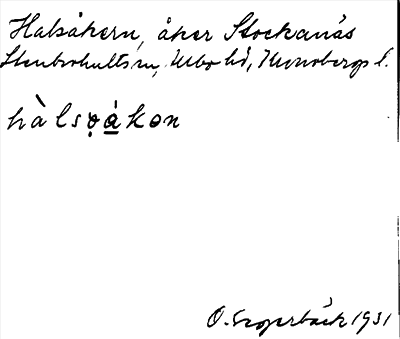 Halsåkern, åker Stockanäs
Stenbrohults sn, Allbo hd, Kronobergs l.
hàlsọá̱kən
O. Segerbäck 1931